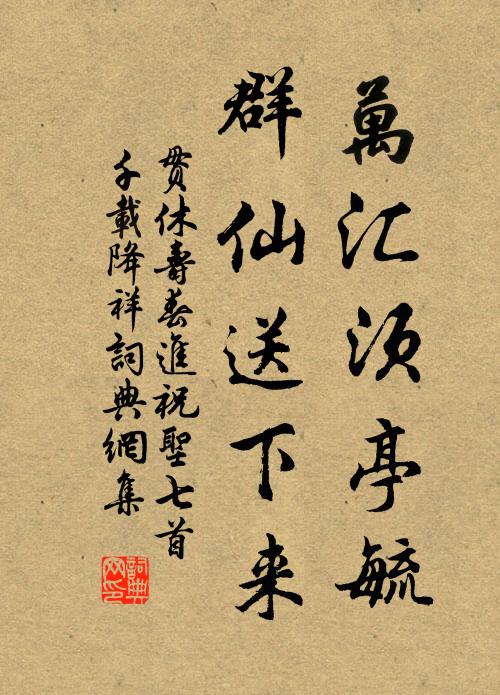 萬汇须亭毓
群仙送下来
贯休壽春進祝聖七首
千載降祥詞典網集
詞典网印